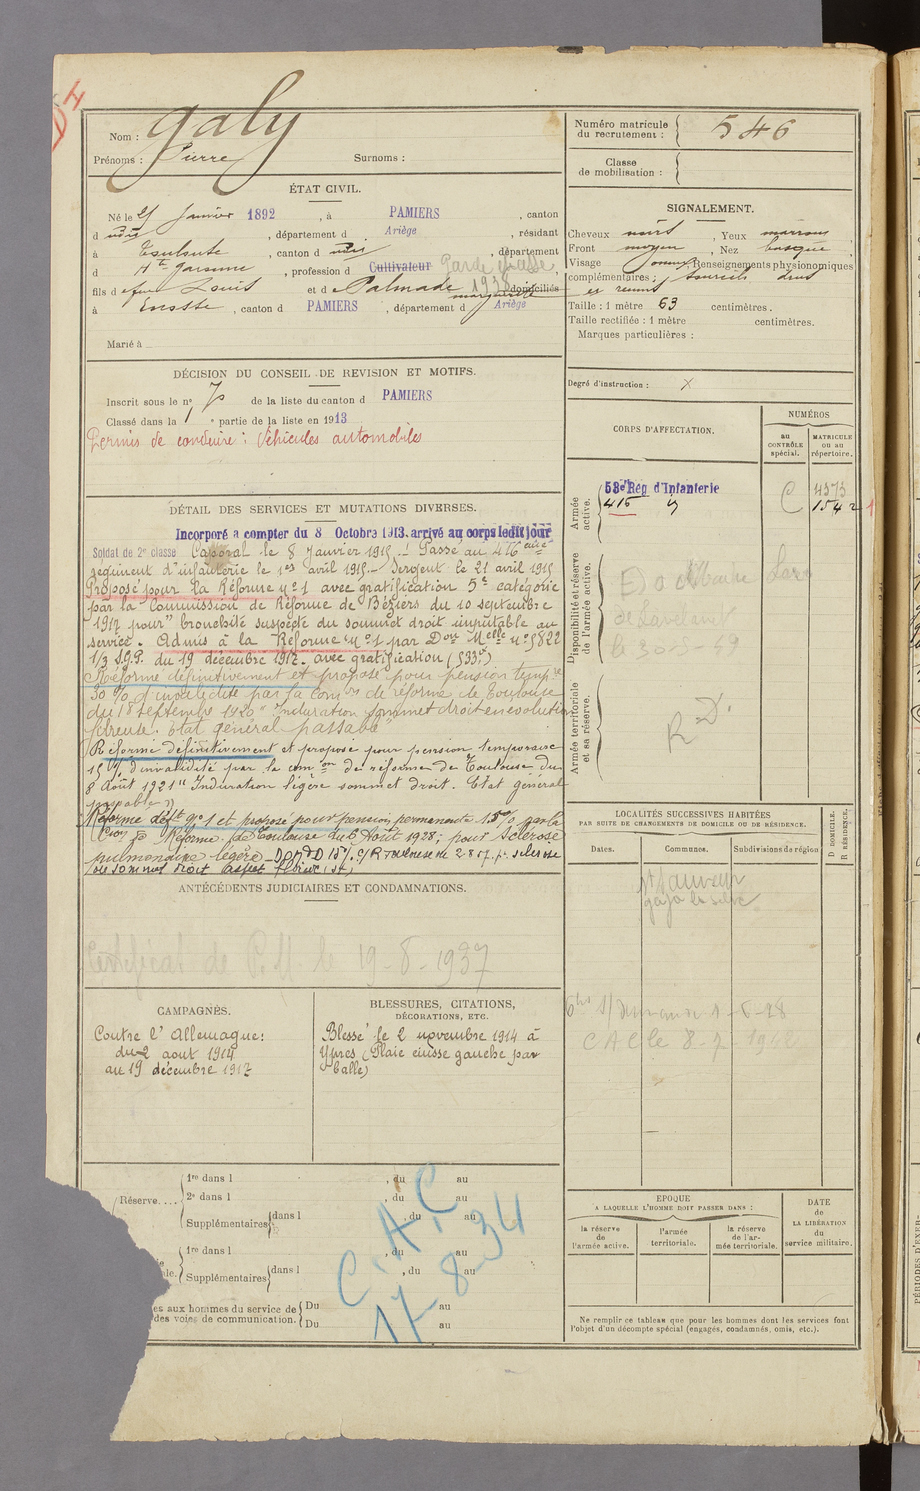 Nom : Galy
Prénoms : Pierre Surnoms :
ÉTAT CIVIL.
Né le Janvier 1892, à PAMIERS, canton
d udis, département d Ariège, résidant
à Toulouse, canton d udis, département
d Hte Garonne, profession d Cultivateur Garde chasse
fils de feu Louis et de Palmade marguerite 1938 domiciliés
à canton d PAMIERS, département d Ariège
Marié à
DÉCISION DU CONSEIL DE REVISION ET MOTIFS.
Inscrit sous le n° de la liste du canton d PAMIERS
Classé dans la 1 e partie de la liste en 1913
Permis de conduire : Véhicules automobiles
DÉTAIL DES SERVICES ET MUTATIONS DIVERSES.
Incorporé a compter du 8 Octobre 1913. arrivé au corps ledit jour
Soldat de 2e classe Caporal le 8 Janvier 1915. Passé au 416 eme
régiment d'infanterie le 1er avril 1915. Sergent le 21 avril 1915
Proposé pour la Réforme n° 1 avec gratification 5e catégorie
par la Commission de Réforme de Béziers du 10 septembre
1917 pour "bronchite suspecte du sommet droit imputable au
service. Admis à la Réforme n° 1 par Don Melle n° 5822
1/3 S.G.P. du 19 décembre 1917. avec gratification (533f)
Réformé définitivement et proposé pour pension tempre
30 % d'invalidité par la Comon de réforme de Toulouse
du 18 septembre 1920 "Induration sommet droit en évolution
fibreuse. Etat général passable"
Réformé définitivement et proposé pour pension temporaire
15 % d'invalidité par la comon de réforme de Toulouse du
8 Août 1921 "Induration légère sommet droit. Etat général
passable"
Réformé déft n° 1 et proposé pour pension permanente 15% par la
Con de Réforme de Toulouse du 6 Août 1928; pour sclérose
pulmonaire légère
du sommet droit aspect
ANTÉCÉDENTS JUDICIAIRES ET CONDAMNATIONS.
Certificat de P.M. le 19-8-1937
CAMPAGNES.
Contre l'Allemagne:
du 2 aout 1914
au 19 décembre 1917
BLESSURES, CITATIONS,
DÉCORATIONS, ETC.
Blessé le 2 novembre 1914 à
Ypres (Plaie cuisse gauche par
balle)
Réserve....
1re dans l , du au
2e dans l , du au
Supplémentaires dans l , du au
1re dans l , du au
Supplémentaires dans l , du au
es aux hommes du service de Du au
des voies de communication. Du au
C.A.C
17-8-34
Numéro matricule
du recrutement : 546
Classe
de mobilisation :
SIGNALEMENT.
Cheveux noirs, Yeux marrons,
Front moyen, Nez busqué,
Visage Renseignements physionomiques
complémentaires : sourcils drus
et réunis
Taille : 1 mètre 63 centimètres.
Taille rectifiée : 1 mètre centimètres.
Marques particulières :
Degré d'instruction : X
CORPS D'AFFECTATION.
NUMÉROS
au
CONTRÔLE
spécial.
MATRICULE
ou au
répertoire.
Armée
active.
53e Rég d'Infanterie C 4373
416 1542
Disponibilité et réserve
de l'armée active.
de Lavelanet
Armée territoriale
et sa réserve.
R D.
LOCALITÉS SUCCESSIVES HABITÉES
PAR SUITE DE CHANGEMENTS DE DOMICILE OU DE RÉSIDENCE.
D DOMICILE.
R RÉSIDENCE.
Dates. Communes. Subdivisions de région
1-6-28
C A C le 8-7
EPOQUE
A LAQUELLE L'HOMME DOIT PASSER DANS :
la réserve
de
l'armée active.
l'armée
territoriale.
la réserve
de l'ar-
mée territoriale.
DATE
de
LA LIBÉRATION
du
service militaire.
Ne remplir ce tableau que pour les hommes dont les services font
l'objet d'un décompte spécial (engagés, condamnés, omis, etc.).